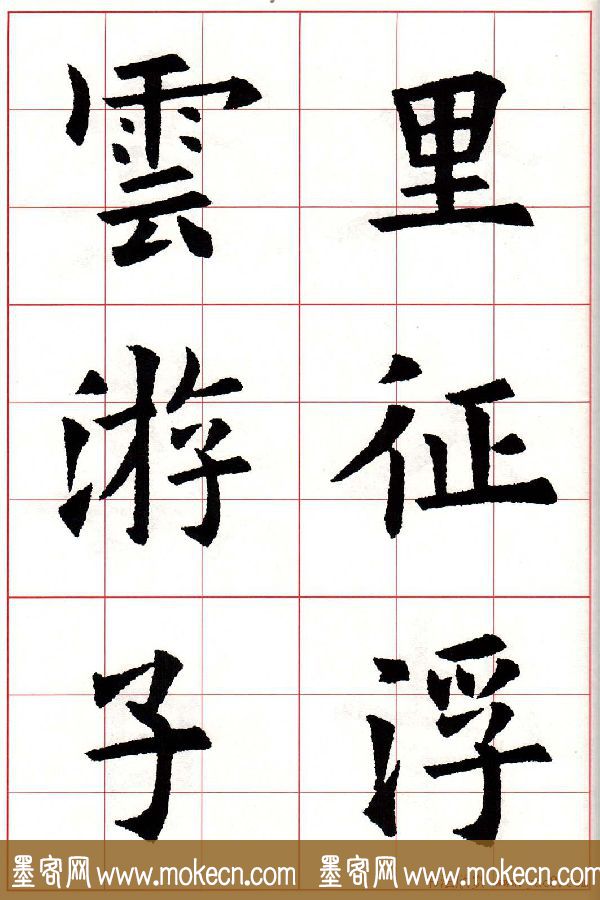 里征浮
雲游子
墨客网 www.mokecn.com 墨客网 www.mokecn.com